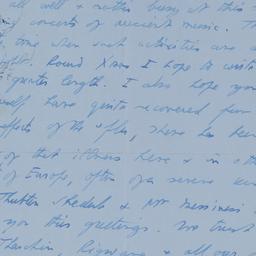 all well & rather busy at this
concerts of ancient music. Th
time when such activities are a
Round Xmas I hope to write
greater length. I also hope you
self have quite recovered from
effects of the flu, there has been
of that illness here & in oth
of Europe, often of a severe
&
you this greetings. We trust
& all our